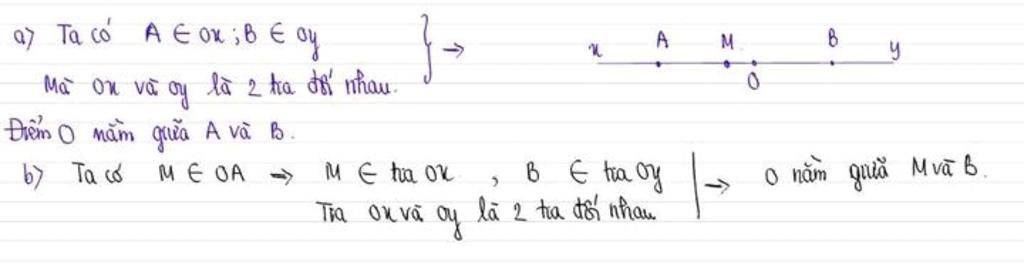 a) Ta có A ∈ Ox ; B ∈ Oy
Mà Ox và Oy là 2 tia đối nhau. } →
x A M O B y
Điểm O nằm giữa A và B.
b) Ta có M ∈ OA → M ∈ tia Ox , B ∈ tia Oy
Tia Ox và Oy là 2 tia đối nhau | → O nằm giữa M và B.